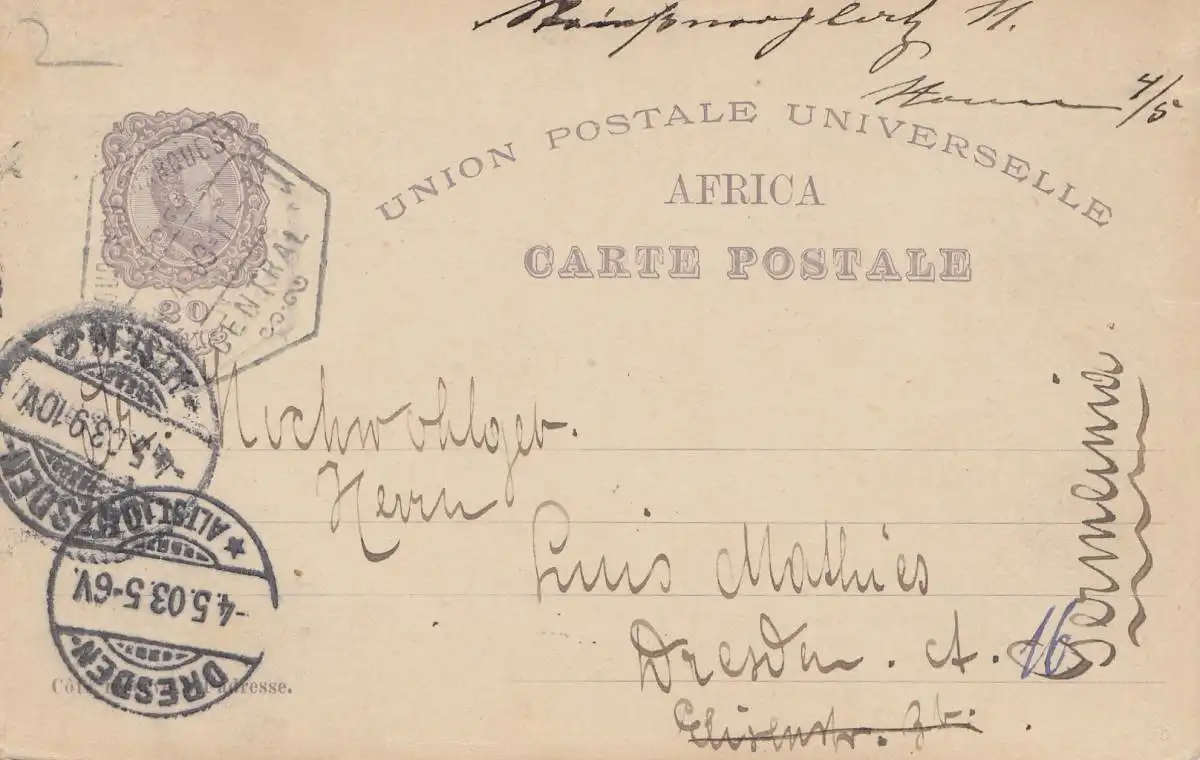 2
4/5
UNION POSTALE UNIVERSELLE
AFRICA
CARTE POSTALE
20
CENTRAL
DRESDEN-
-4.5.03.9-10V.
DRESDEN-
ALTST.10
-4.5.03.5-6V.
Hochwohlgeb.
Herrn
Luis Mathies
Dresden. A. 16
Elisenstr.
Germania.
Côté adresse.